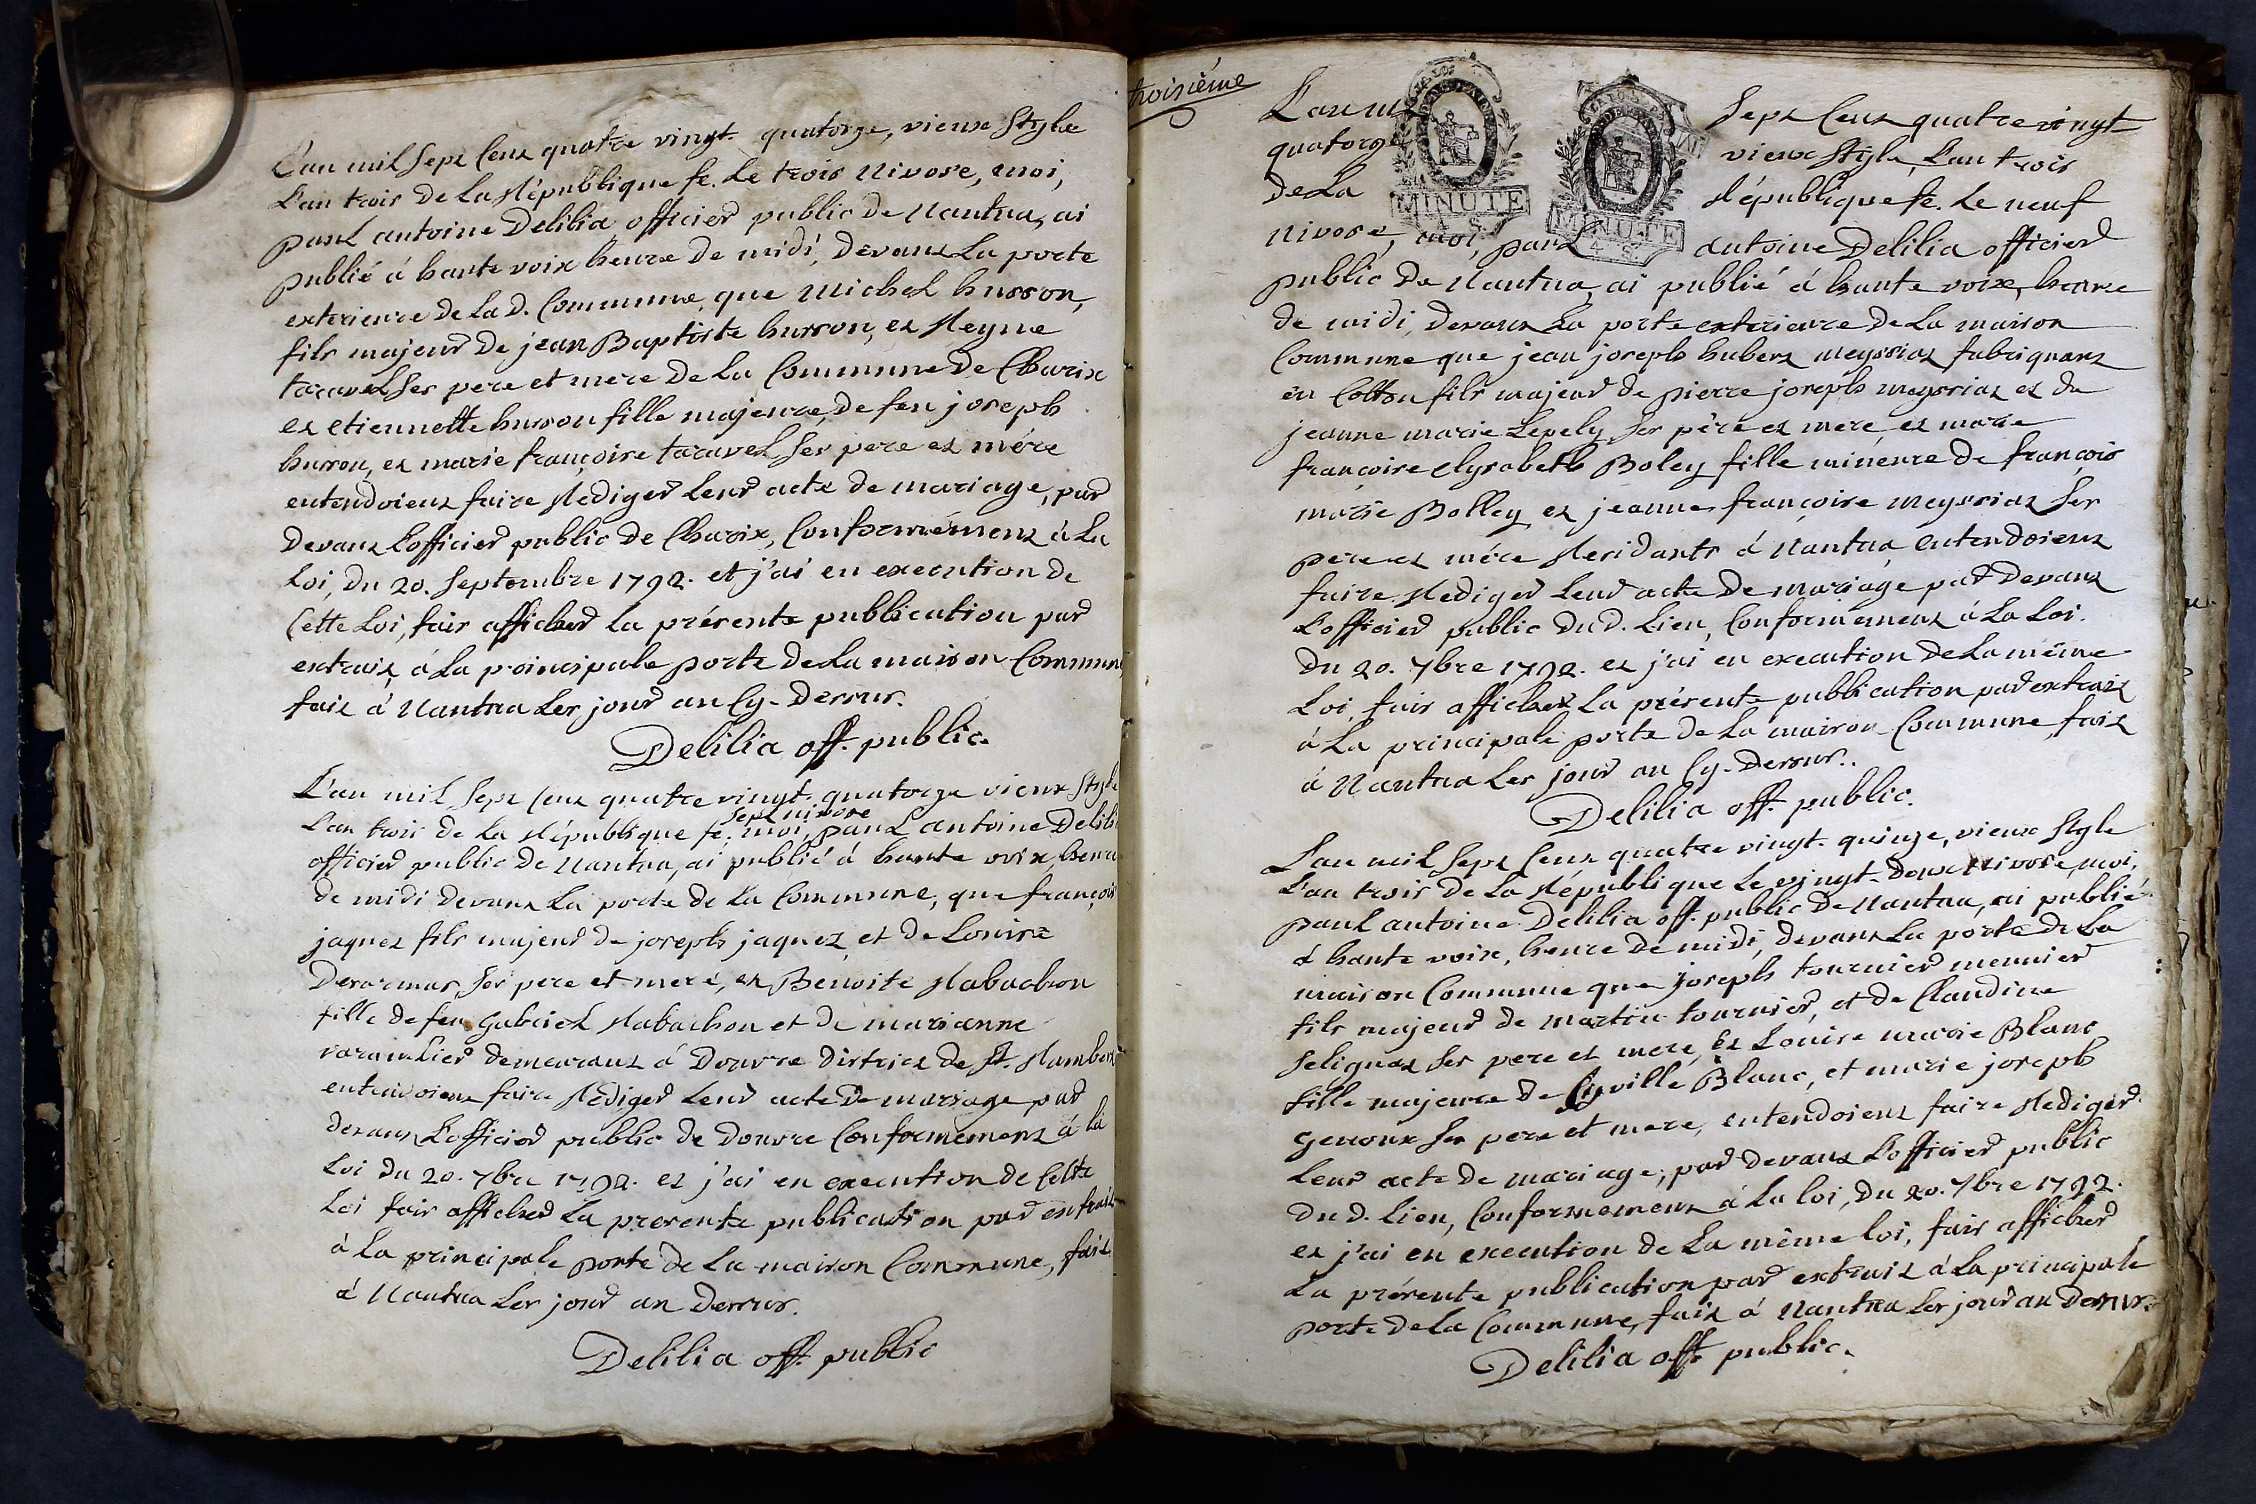 L'an mil sept cent quatre vingt quatorze, vieux style
L'an trois de la République fe. le trois nivose, moi,
paul antoine Delilia officier public de Nantua, ai
publié á haute voix heure de midi, devant la porte
exterieure de la d. Commune, que michel husson,
fils majeur de jean Baptiste husson, et Reyne
taravel ses pere et mere de la Commune de Charix
et etiennette husson fille majeure, de feu joseph
husson, et marie françoise taravel ses pere et mére
entendoient faire Rediger leur acte de mariage, par
devant l'officier public de Charix, Conformément à la
Loi, du 20. septembre 1792. et j'ai en execution de
Cette loi, fait afficher la présente publication par
extrait, á la principale porte de la maison Commune
fait á Nantua les jour an cy-dessus.
Delilia off. public.
L'an mil sept cent quatre vingt quatorze vieux style
sept nivose
L'an trois de la République fe. moi, paul antoine Delilia
officier public de Nantua, ai publié á haute voix, heure
de midi devant la porte de la Commune, que françois
jaquet fils majeur de joseph jaquet, et de Louise
ses pere et mere, et Benoite Rabachon
fille de feu Gabriel Rabachon et de marianne
demeurant á Douvre district de St. Rambert
entendoient faire Rédiger leur acte de mariage par
devant l'officier public de douvre Conformement á la
Loi du 20. 7bre 1792. et j'ai en execution de Cette
Loi fait afficher la presente publication par extrait
à la principale porte de la maison Commune, fait
á Nantua les jour an dessus.
Delilia off. public
troisiéme
L'an mil sept Cent quatre vingt
quatorze vieux style, L'an trois
de La République fe. Le neuf
nivose, moi, paul antoine Delilia officier
public de Nantua, ai publié á haute voix, heure
de midi, devant la porte exterieure de la maison
Commune que jean joseph hubert meyssiat fabriquant
en Cotton fils majeur de pierre joseph meyssiat et de
jeanne marie Lepely ses père et mere et marie
françoise elysabeth Boley fille mineure de françois
marie Bolley et jeanne françoise meyssiat ses
pere et mére Residants á Nantua entendoient
faire Rediger leur acte de mariage par devant
L'officier public du d. lieu, Conformément á la Loi.
du 20. 7bre 1792. et j'ai en execution de la même
Loi, fait afficher la présente publication par extrait
á la principale porte de la maison Commune, fait
á Nantua les jour an cy-dessus..
Delilia off. public.
L'an mil sept Cent quatre vingt quinze, vieux style
L'an trois de la République le vingt-deux nivose, moi,
paul antoine Delilia off. public de Nantua, ai publié
á haute voix, heure de midi, devant la porte de la
maison Commune que joseph tournier meunier
fils majeur de martin tournier, et de Claudine
selignat ses pere et mere, et Louise marie Blanc
fille majeure de Cyville Blanc, et marie joseph
Genoux ses pere et mere, entendoient faire Rediger
leur acte de mariage, par devant L'officier public
du d. lieu, Conformement á la loi, du 20. 7bre 1792.
et j'ai en execution de la même loi, fait afficher
La présente publication par extrait á la principale
porte de la Commune, fait á Nantua les jour an dessus.
Delilia off. public.
MINUTE
MINUTE